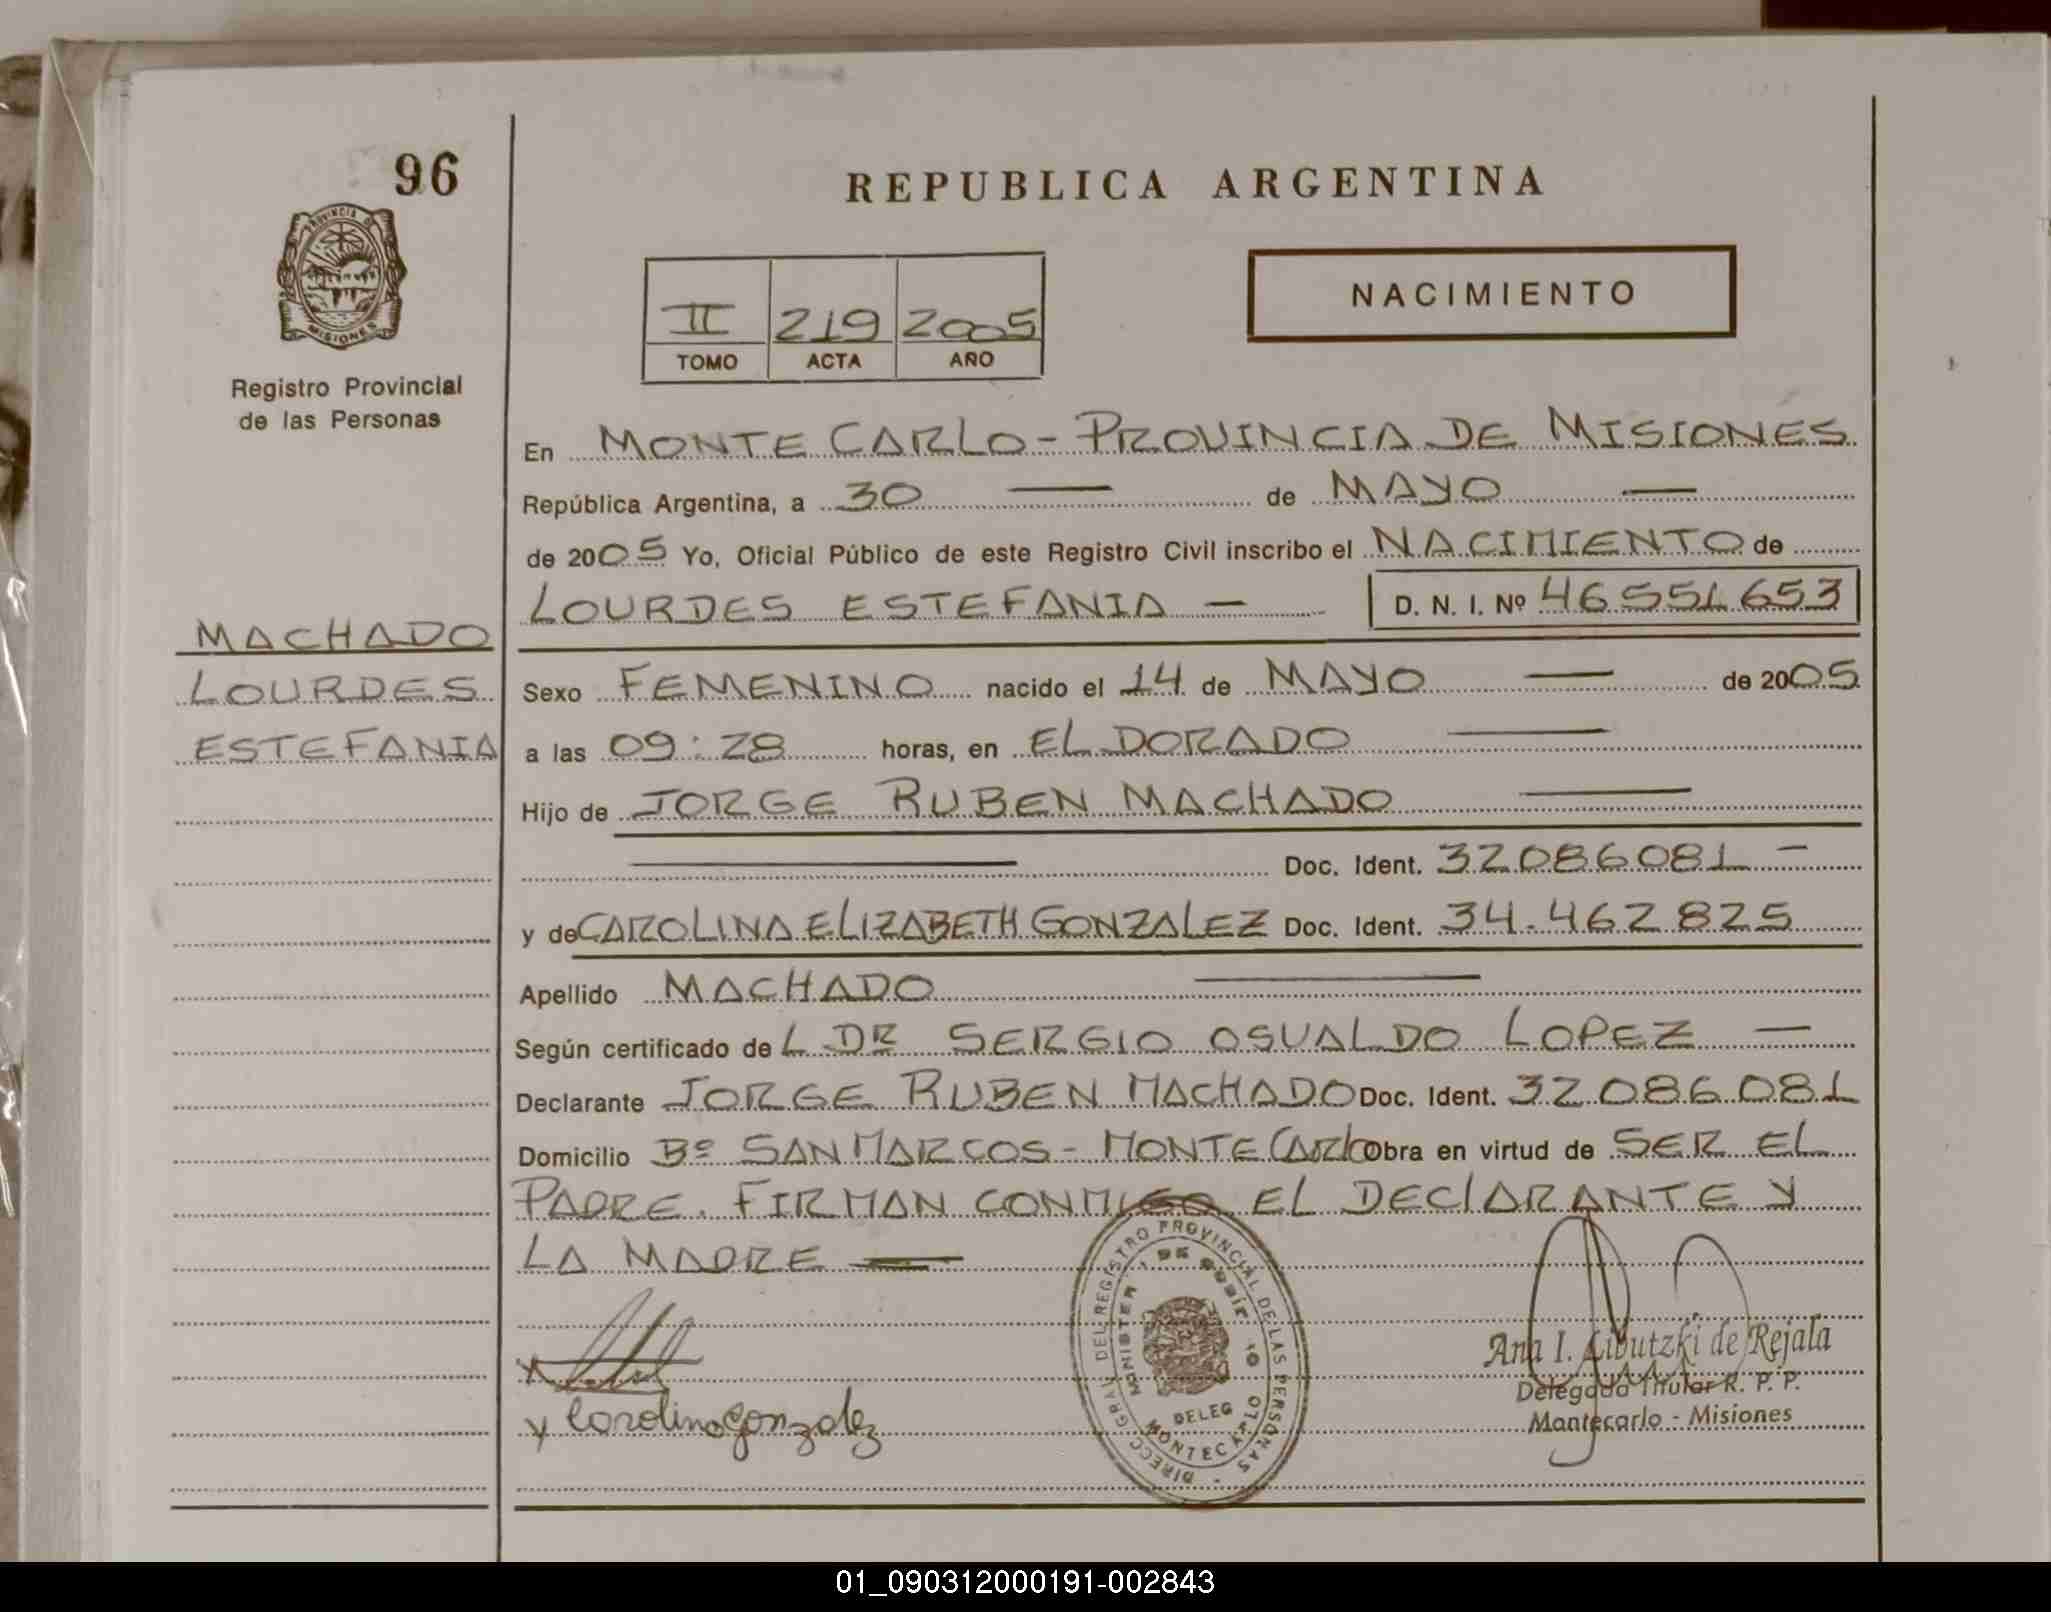 96
REPUBLICA ARGENTINA
PROVINCIA DE
MISIONES
Registro Provincial
de las Personas
II 219 2005
TOMO ACTA AÑO
NACIMIENTO
En MONTE CARLO - PROVINCIA DE MISIONES
República Argentina, a 30 — de MAYO —
de 2005 Yo, Oficial Público de este Registro Civil inscribo el NACIMIENTO de
LOURDES ESTEFANIA — D. N. I. Nº 46551653
MACHADO
LOURDES
ESTEFANIA
Sexo FEMENINO nacido el 14 de MAYO — de 2005
a las 09:28 horas, en EL DORADO —
Hijo de JORGE RUBEN MACHADO —
— Doc. Ident. 32086081 -
y de CAROLINA ELIZABETH GONZALEZ Doc. Ident. 34.462825
Apellido MACHADO —
Según certificado de L DR SERGIO OSUALDO LOPEZ —
Declarante JORGE RUBEN MACHADO Doc. Ident. 32086081
Domicilio Bº SAN MARCOS - MONTE CARLO Obra en virtud de SER EL
PADRE. FIRMAN CONMIGO EL DECLARANTE Y
LA MADRE —
DIRECC GRAL DEL REGISTRO PROVINCIAL DE LAS PERSONAS
DELEG
MONTECARLO
Carolina Gonzalez
Ana I. Libutzki de Rejala
Delegada Titular R. P. P.
Montecarlo - Misiones
01_090312000191-002843